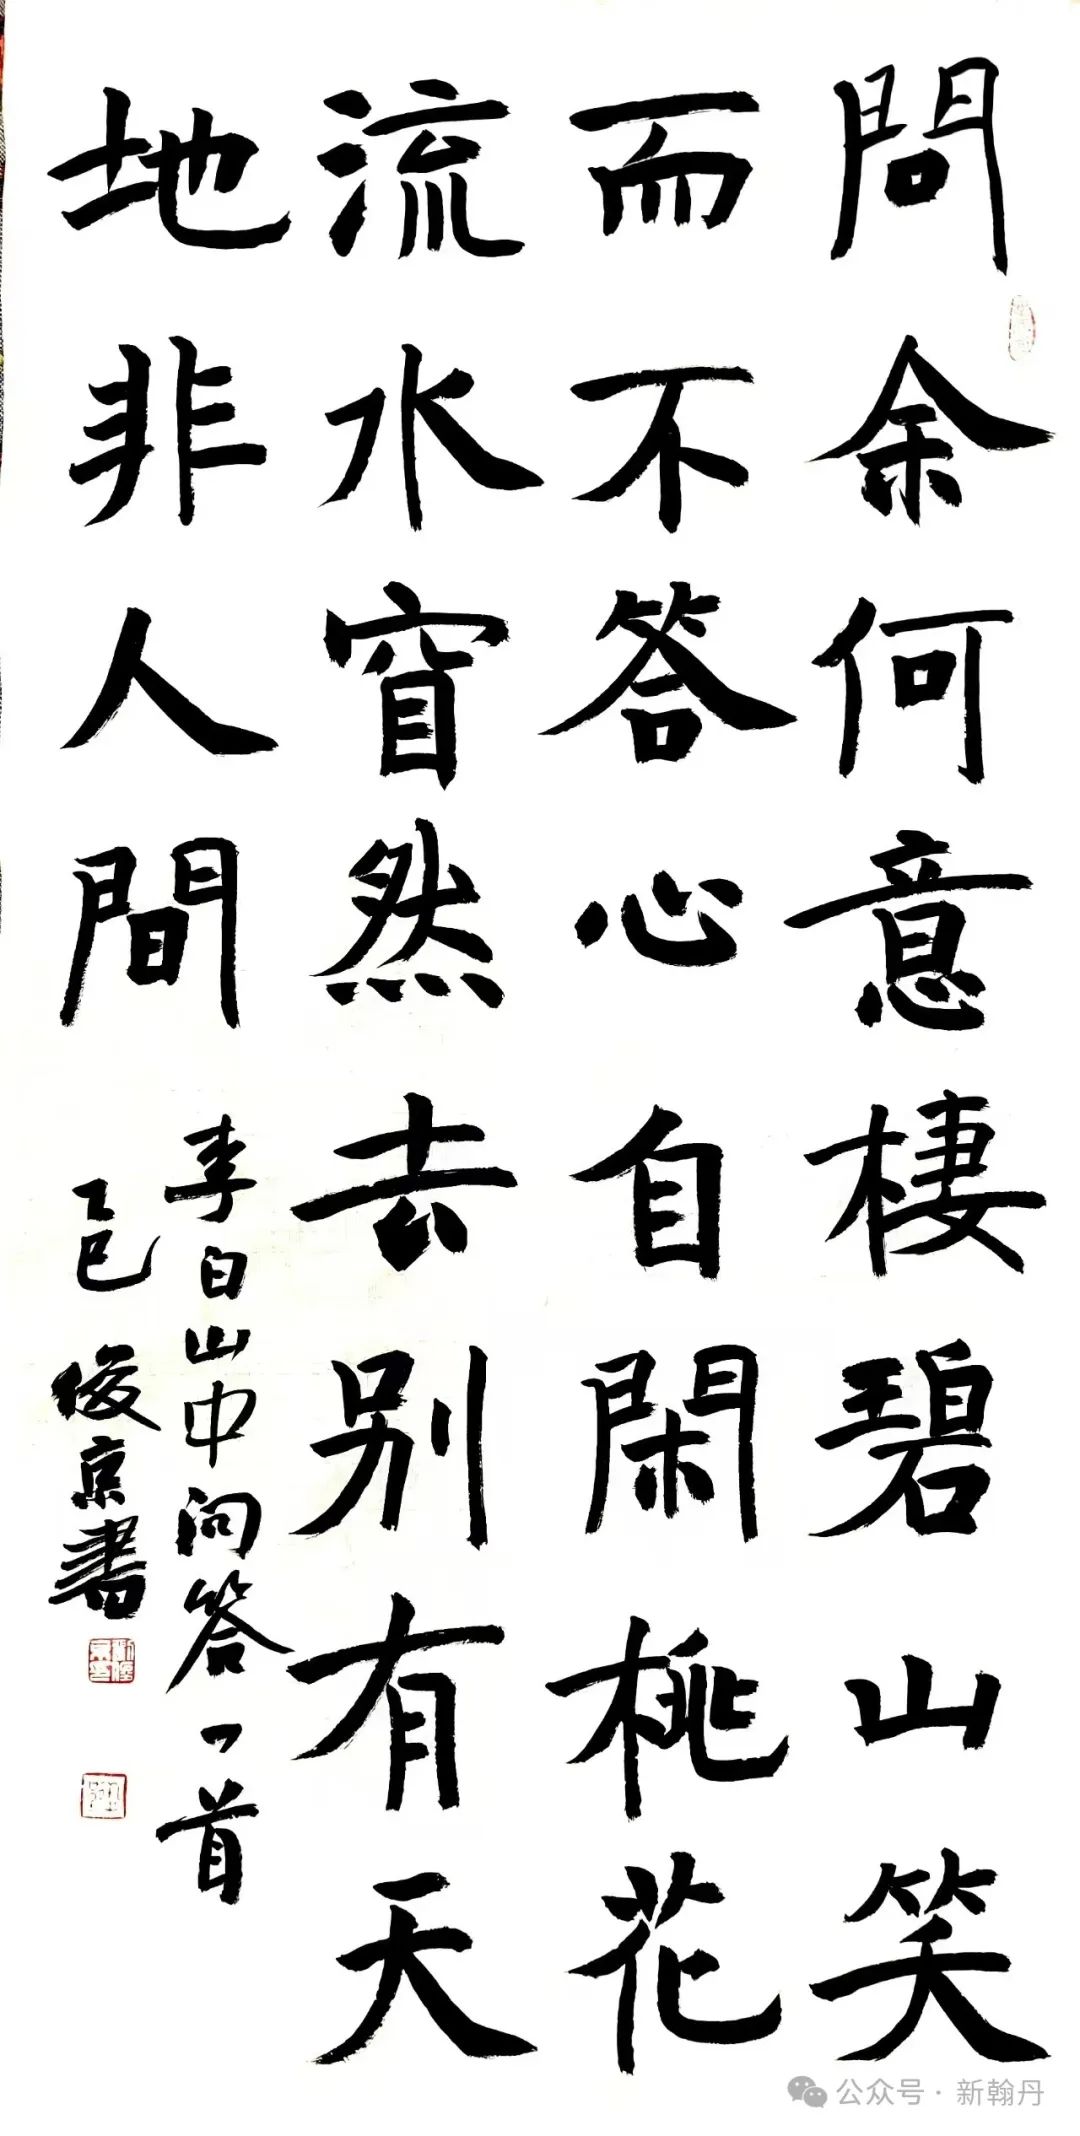 問余何意棲碧山笑
而不答心自閑桃花
流水窅然去别有天
地非人間
李白山中问答一首
乙巳俊京書
公众号·新翰丹